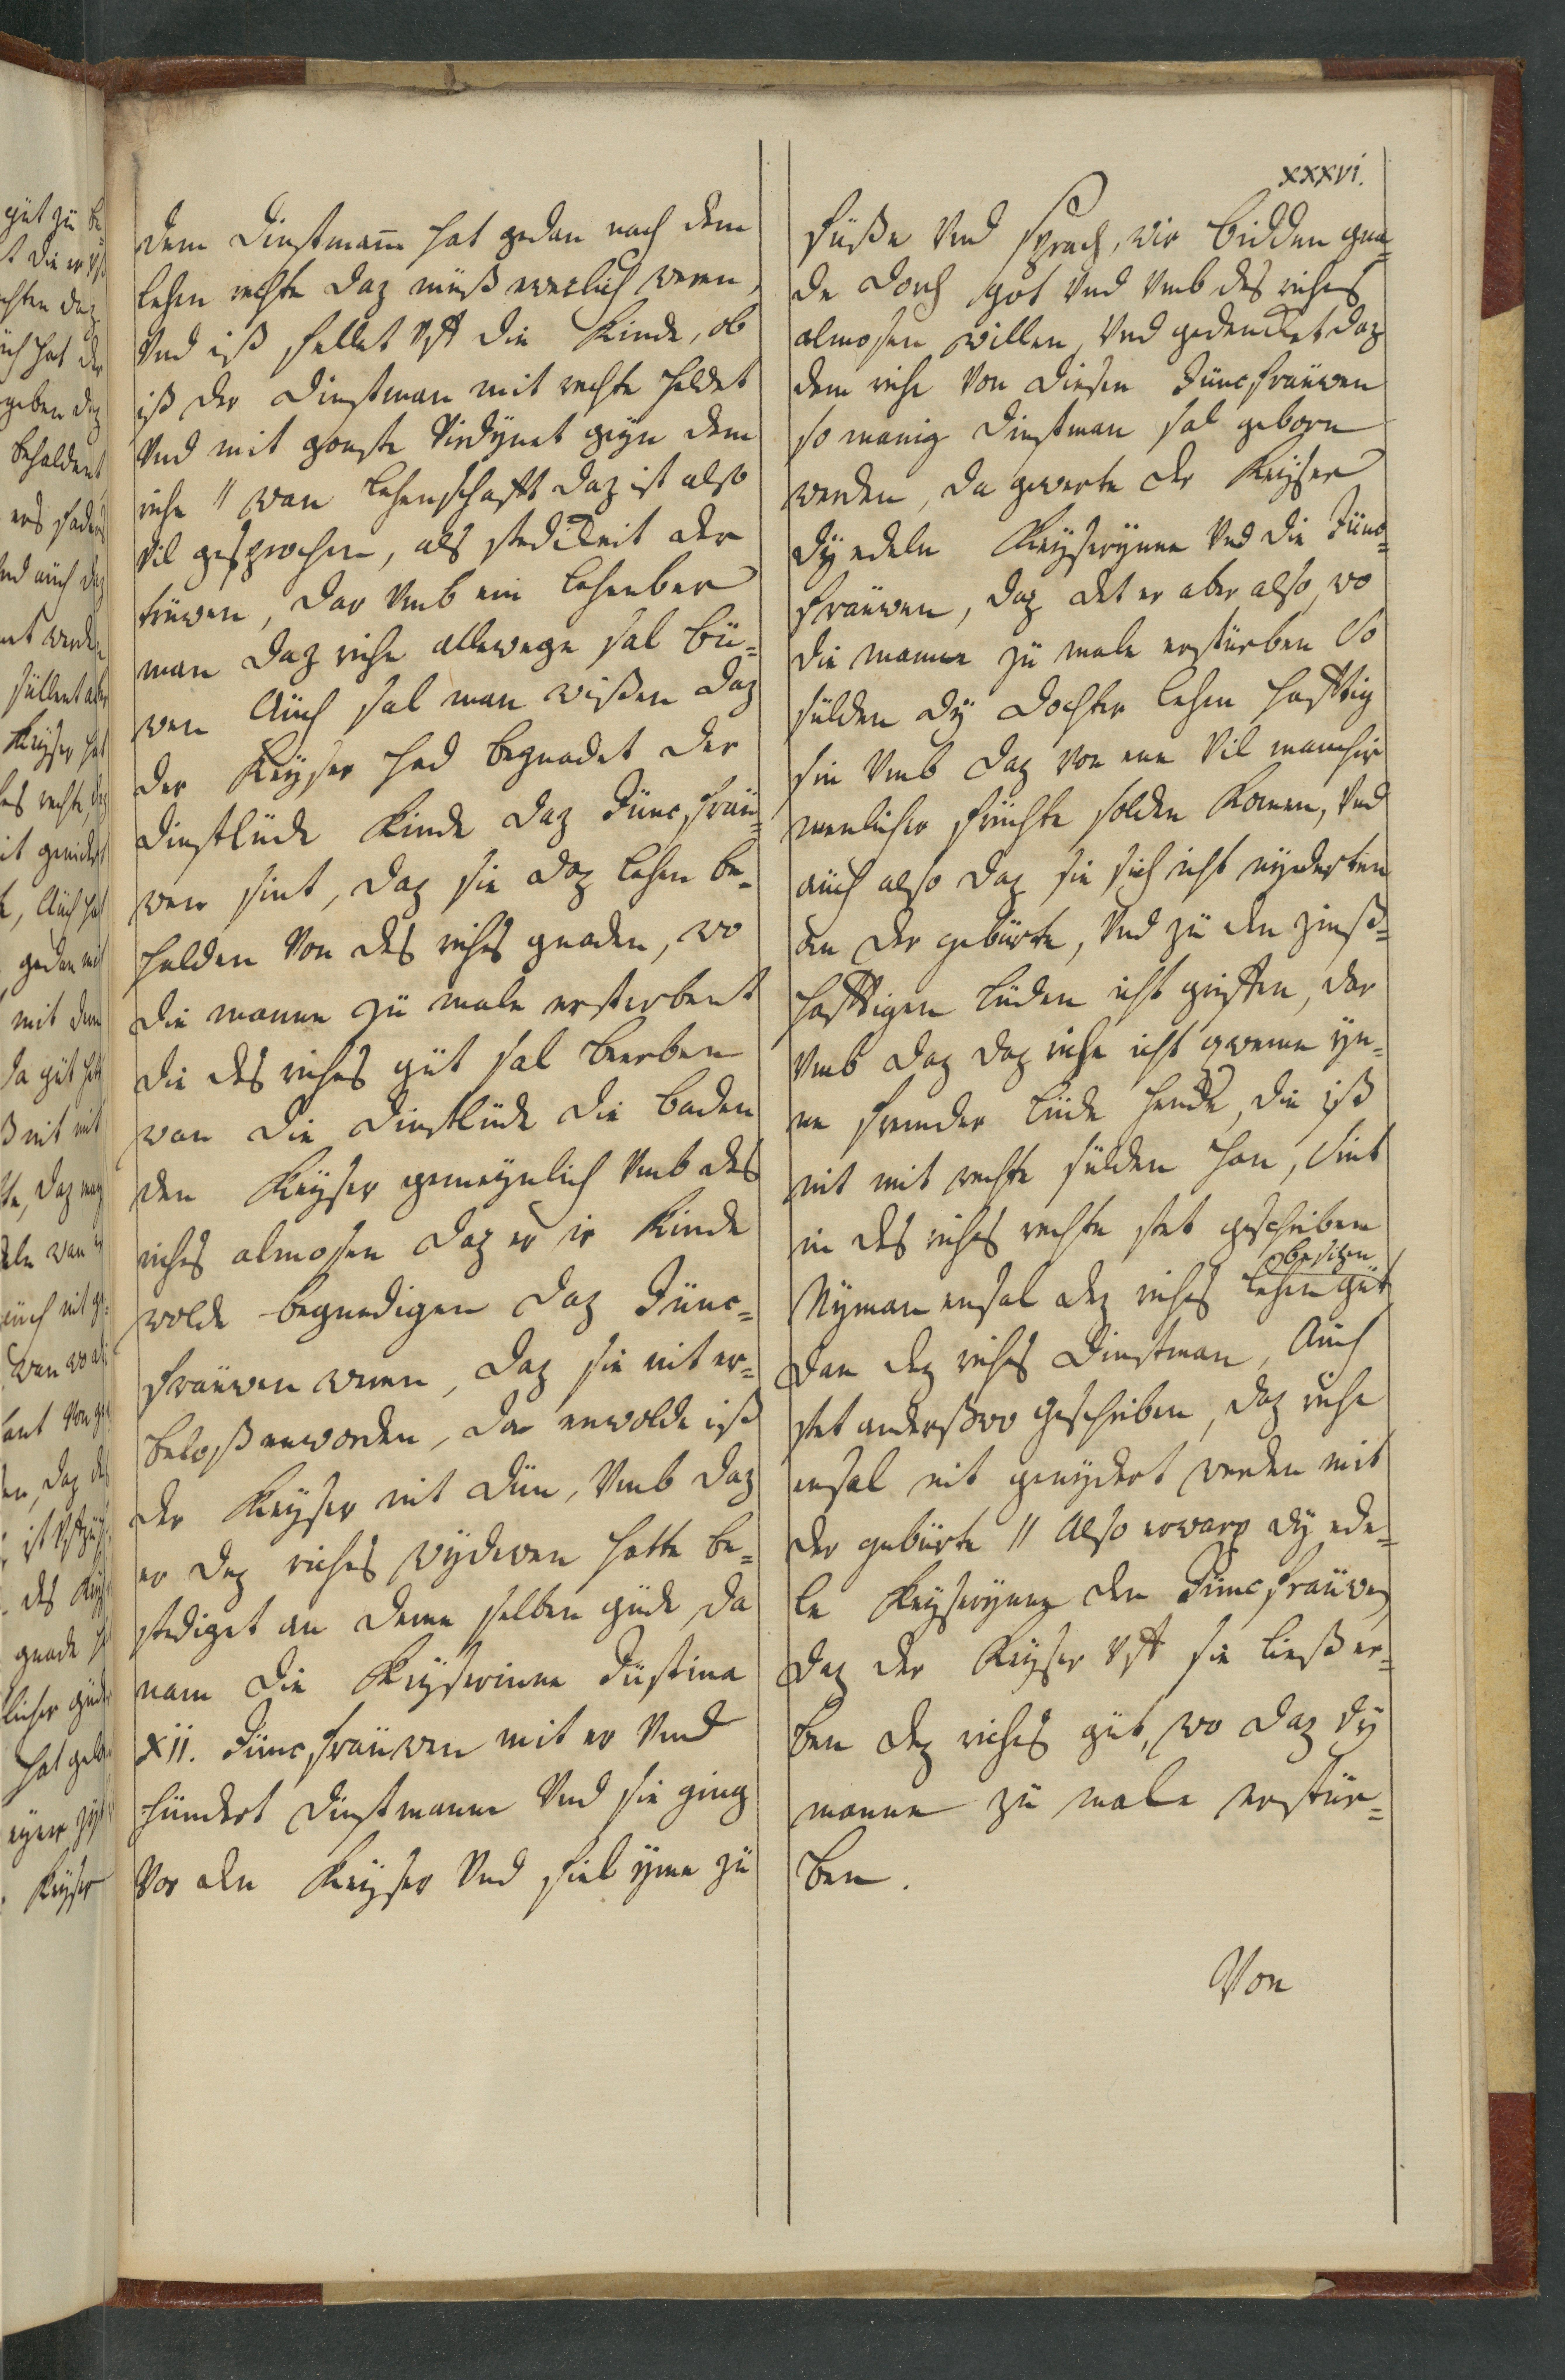 xxxvi.
dem dinstmann hat gedan nach dem
lehen rechte daz muß ewelich weren,
Vnd iß fellet Vff die Kinde, ob
iß der dinstman mit rechte heldet
Vnd mit gonste Virdynet geyn dem
riche // wan lehenschafft daz ist also
Vil gesprochen, als stedikeit der
truwen, dar Vmb ein lehenber
man daz riche allewege sal bu=
wen Auch sal man wißen daz
der Keyser had begnadet der
dinstlude Kinde daz Juncfrau=
wen sint, daz sie daz lehen be=
halden Von des riches gnaden, wo
die manne zu male ersterbent
die des riches gut sal beerben
wan die dinstlude die baden
den Keyser gemeynlich Vmb des
riches almosen daz er ir Kinde
wolde begnedigen daz Junc=
frauwen weren, daz sie nit er=
beloß enworden, da enwolde iß
der Keyser nit dun, Vmb daz
er dez riches wydewen hatte be=
stediget an deme selben gude da
nam die Keyserinne Justina
XII. Juncfrauwen mit er Vnd
hundert dinstmanne Vnd sie ging
Vor den Keyser Vnd fiel yme zu
fuße Vnd sprach, wir bidden gna=
de dorch got Vnd Vmb des riches
almosen willen, Vnd gedencket daz
dem riche Von diesen Juncfrauwen
so manig dinstman sal geborn
werden, da gewerte der Keyser
dy edeln Keyserynne Vnd die Junc=
frauwen, daz det er aber also, wo
die manne zu male ersturben So
sulden dy dochter lehen hafftig
sin Vmb daz Von enn Vil mancher
menlicher fruchte solden Komen, Vnd
auch also daz sie sich icht nyderten
an der geburte, Vnd zu den zinß=
hafftigen luden icht griffen, dar
Vmb daz daz riche icht queme yn=
ne fremder lude hende, die iß
nit mit rechte sulden han, Sint
in des riches rechte stet geschriben
Nyman ensal dez riches lehen gut
besitzen
dan dez riches dinstman, Auch
stet anderßwo geschriben, daz riche
ensal nit genydert werden mit
der geburte // Also erwarp dy ede=
le Keyserynne den Juncfrauwen
daz der Keyser Vff sie ließ er=
ben dez riches gut, wo daz dy
manne zu male erstur=
ben.
Von